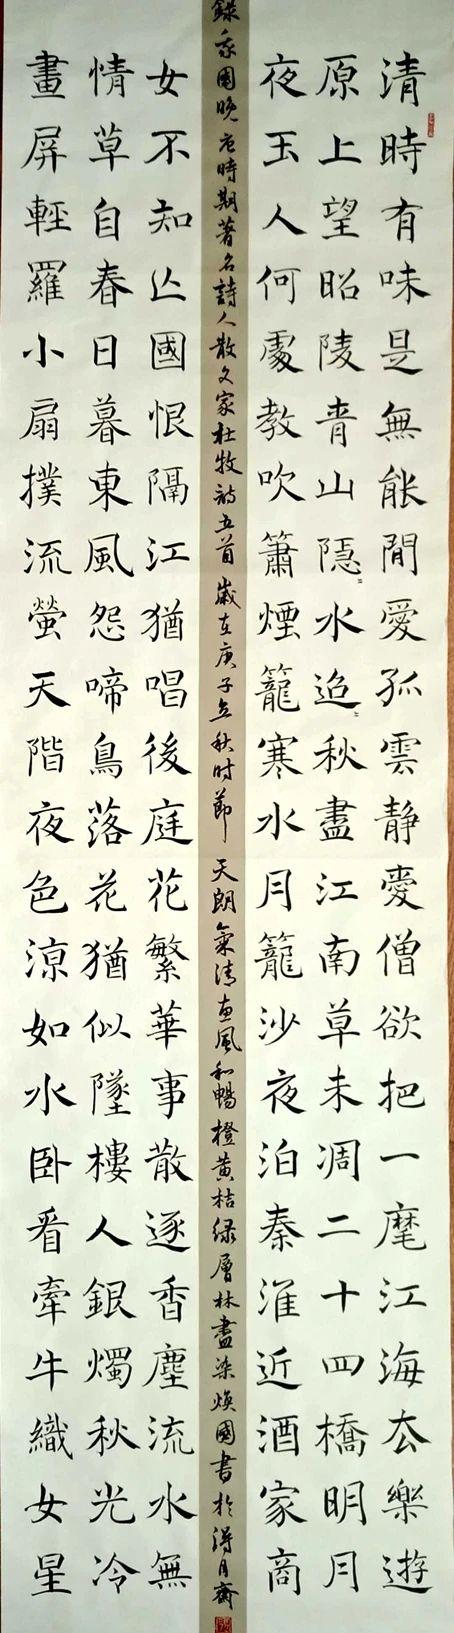 清時有味是無能閒愛孤雲静愛僧欲把一麾江海去樂遊
原上望昭陵青山隱〻水迢〻秋盡江南草未凋二十四橋明月
夜玉人何處教吹簫煙籠寒水月籠沙夜泊秦淮近酒家商
女不知亡國恨隔江猶唱後庭花繁華事散逐香塵流水無
情草自春日暮東風怨啼鳥落花猶似墜樓人銀燭秋光冷
畫屏輕羅小扇撲流螢天階夜色涼如水卧看牽牛織女星
錄我國晚唐時期著名詩人散文家杜牧詩五首 歲在庚子立秋时節 天朗氣清惠風和暢橙黄桔绿層林盡染煥國書於得月齋